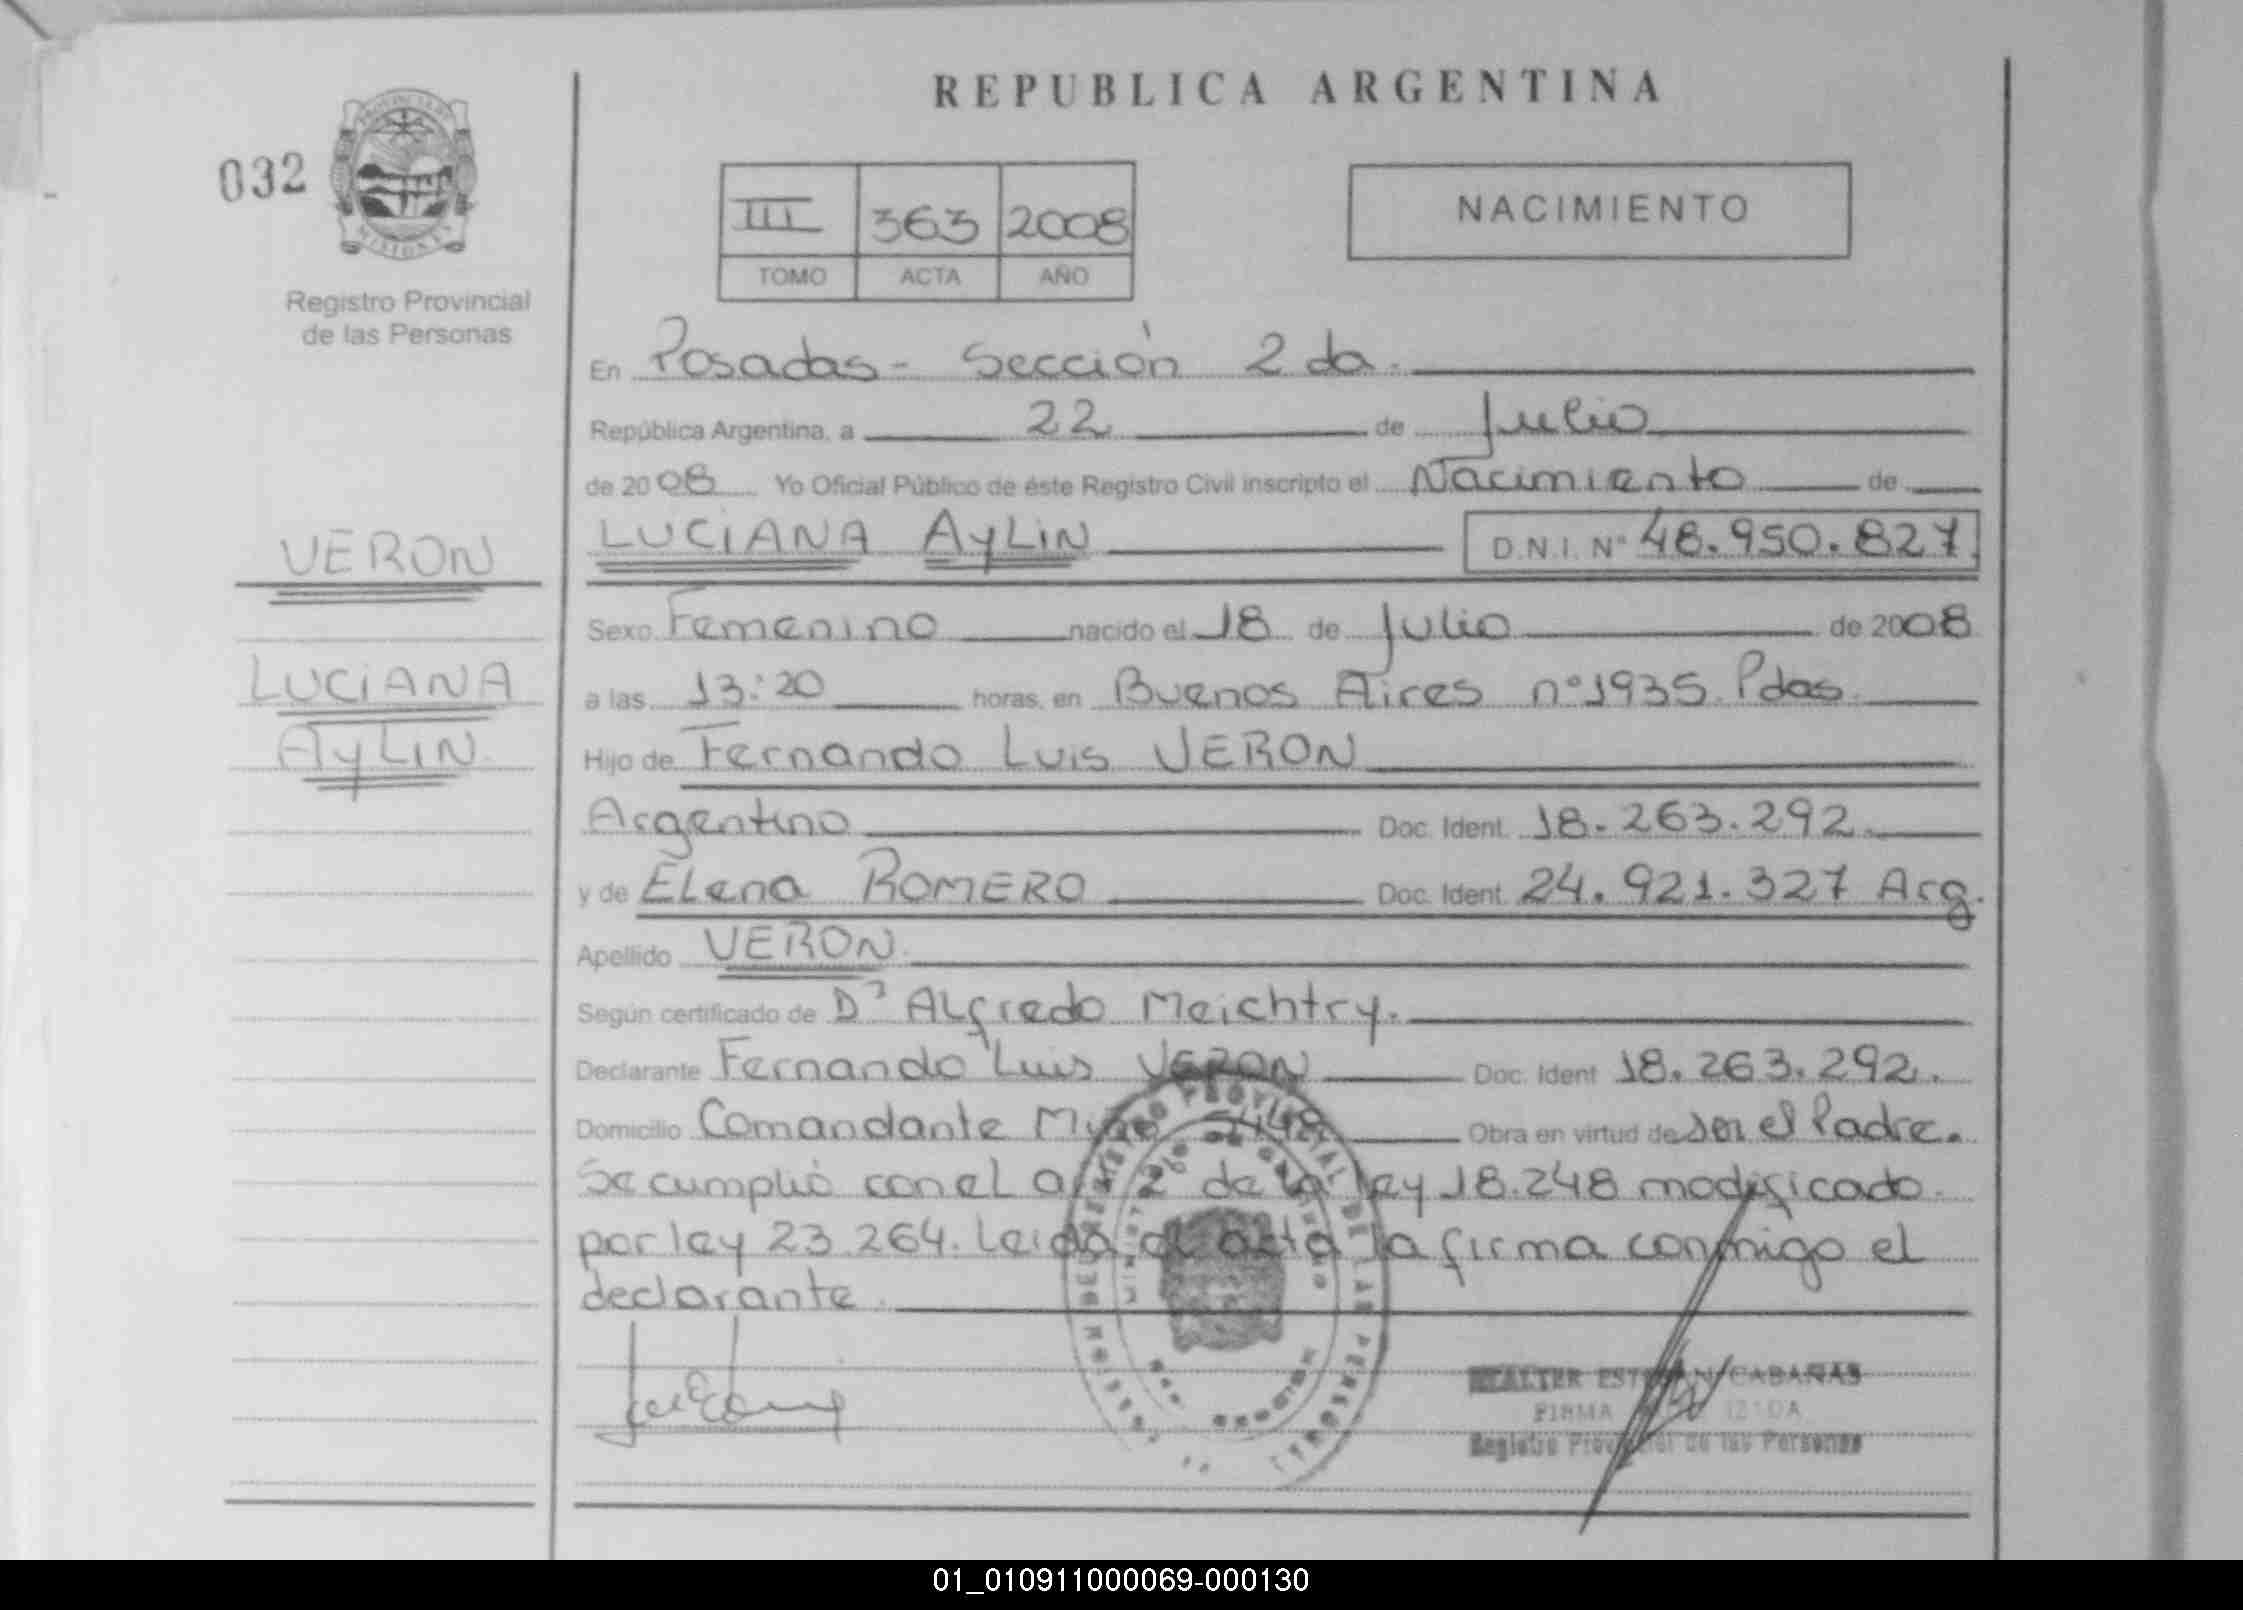 REPUBLICA ARGENTINA
032
PROVINCIA DE
MISIONES
Registro Provincial
de las Personas
III 363 2008
TOMO ACTA AÑO
NACIMIENTO
En Posadas - Sección 2da.
República Argentina, a 22 de Julio
de 2008 Yo Oficial Público de éste Registro Civil inscripto el Nacimiento de
VERON
LUCIANA AyLiN D.N.I. N° 48.950.827
LUCiANA
AyLiN.
Sexo Femenino nacido el 18 de Julio de 2008
a las 13:20 horas, en Buenos Aires n° 1935. Pdas.
Hijo de Fernando Luis VERON
Argentino Doc. Ident. 18.263.292.
y de ELena ROMERO Doc. Ident. 24.921.327 Arg.
Apellido VERON.
Según certificado de Dr Alfredo Meichtry.
Declarante Fernando Luis VERON Doc. Ident 18.263.292.
Domicilio Comandante Obra en virtud de ser el Padre.
Se cumplió con el 2° de la ley 18.248 modificado
por ley 23.264. Leida el acta la firma conmigo el
declarante.
REGISTRO PROVINCIAL DE LAS PERSONAS
CABAÑAS
FIRMA
Registro Provincial de las Personas
01_010911000069-000130